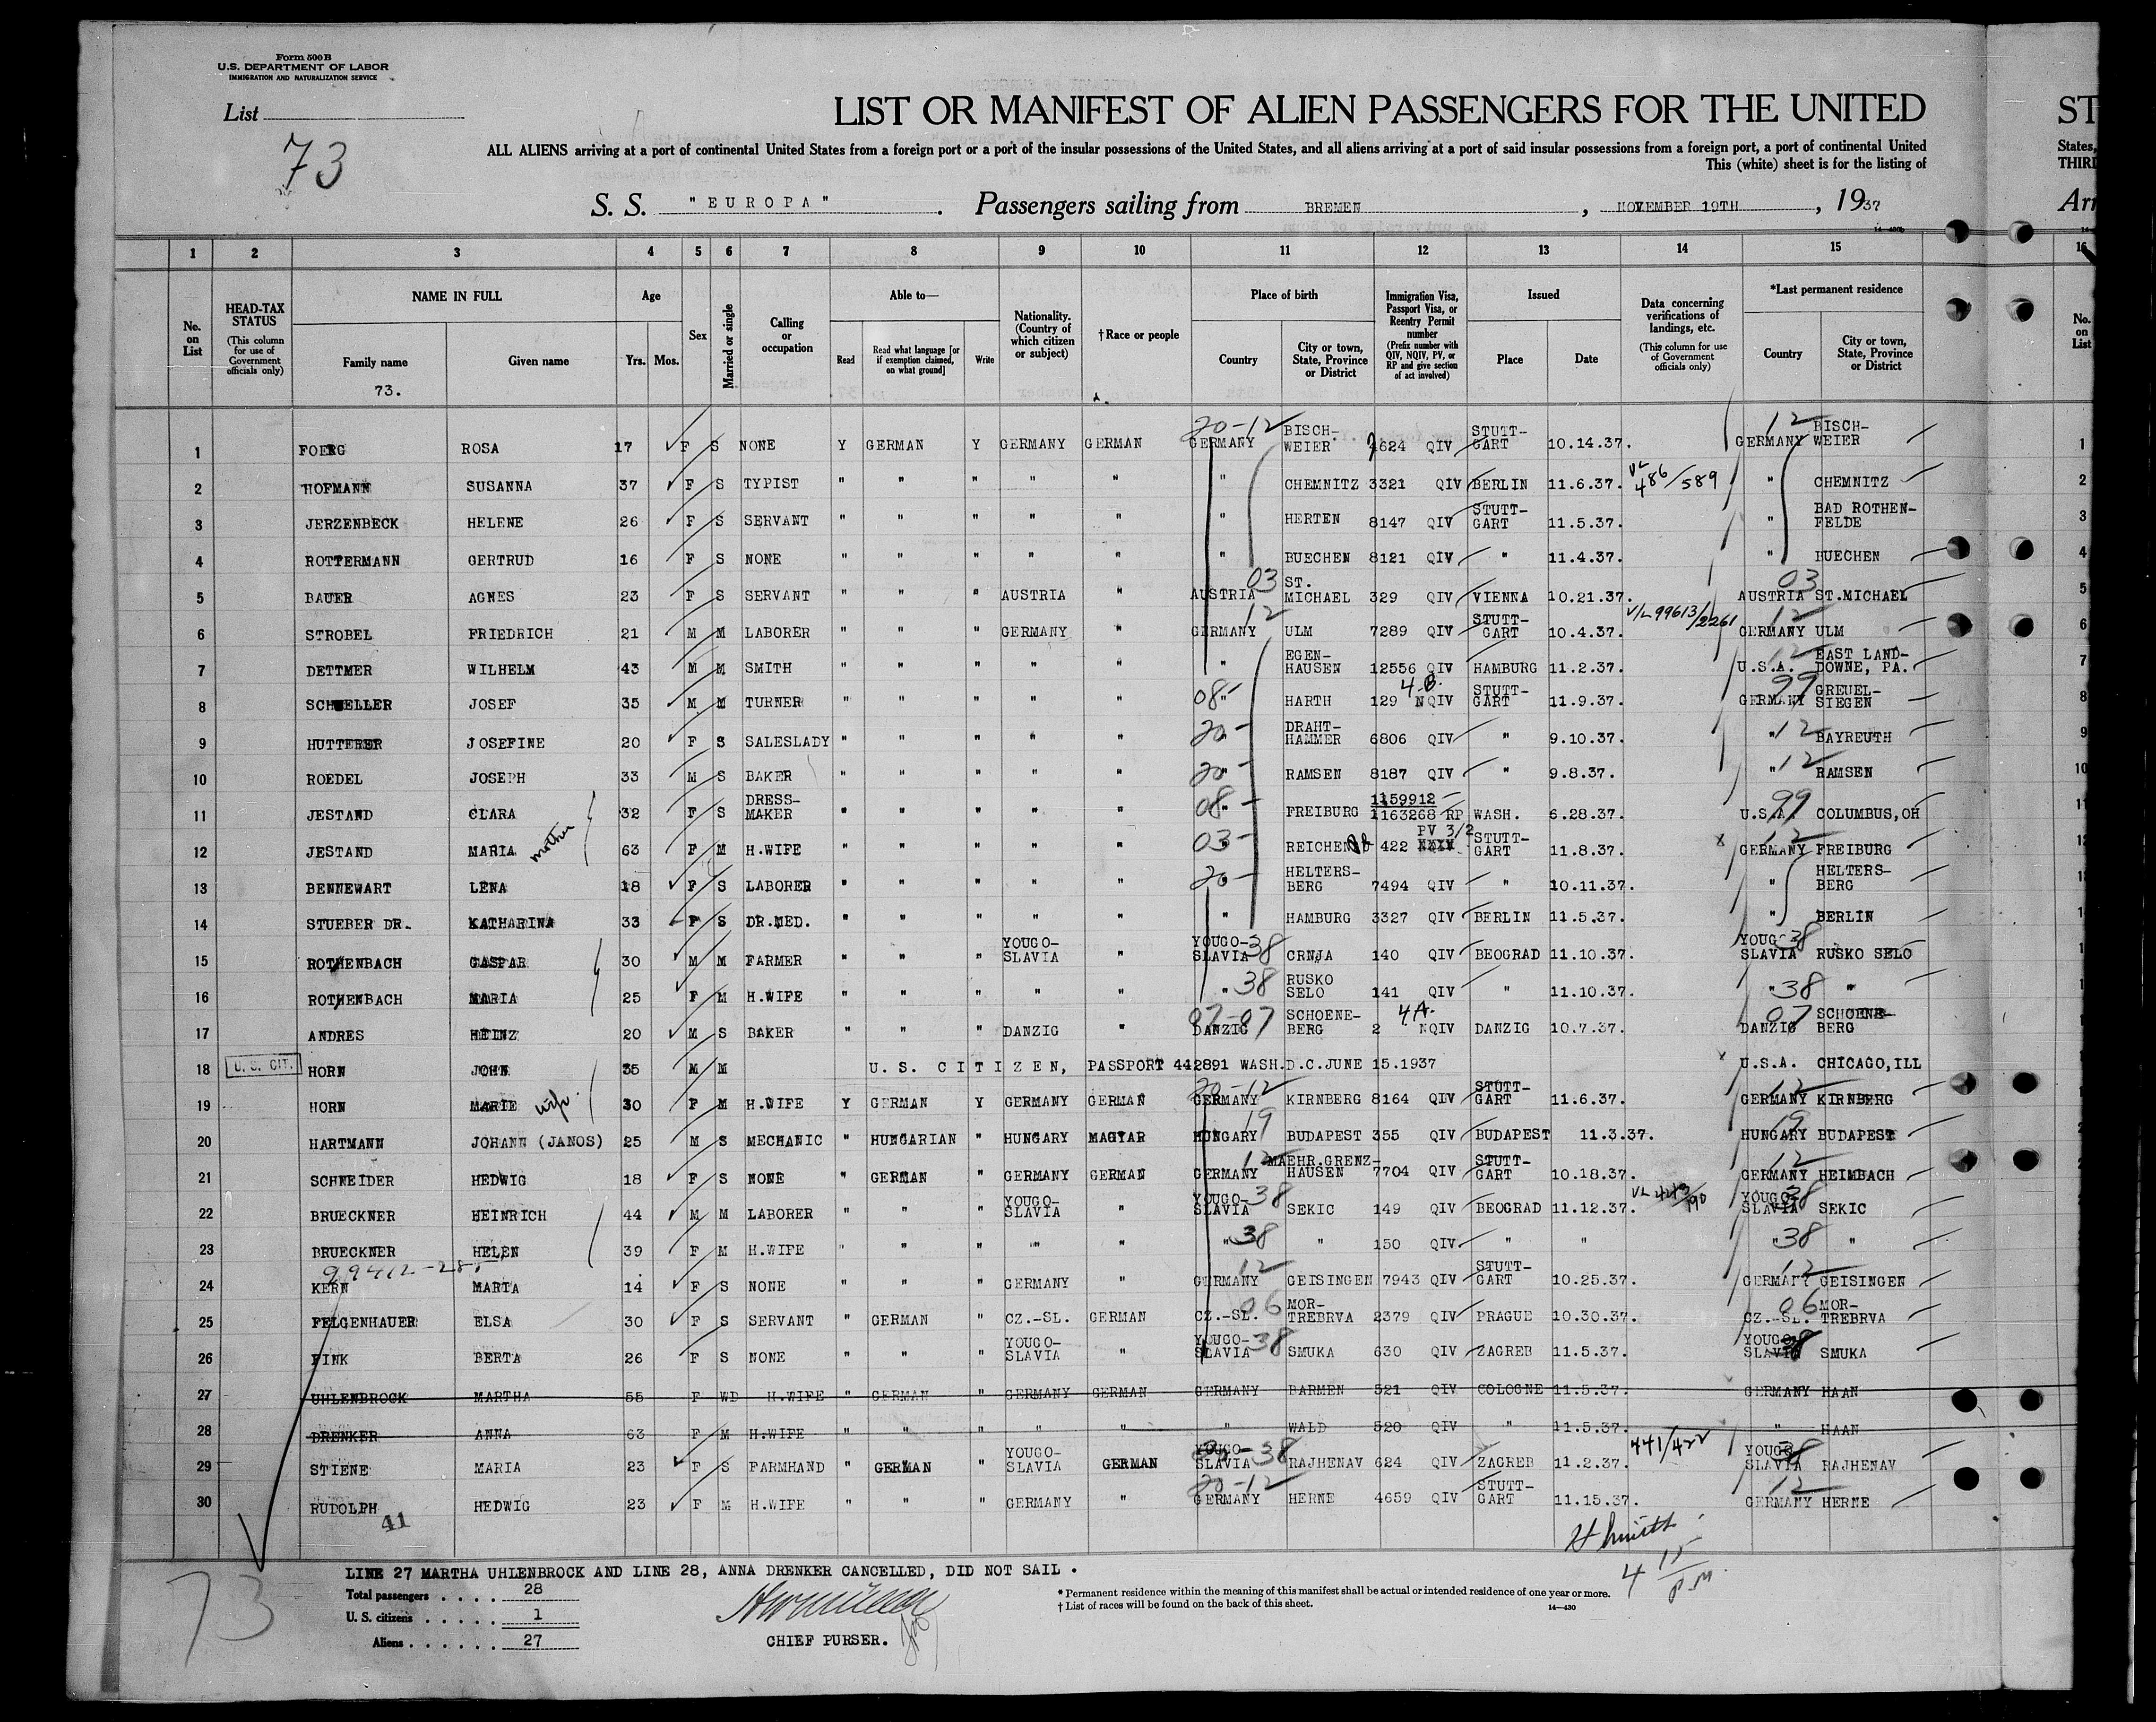 Form 500 B
U.S. DEPARTMENT OF LABOR
IMMIGRATION AND NATURALIZATION SERVICE
List
73
LIST OR MANIFEST OF ALIEN PASSENGERS FOR THE UNITED ST
ALL ALIENS arriving at a port of continental United States from a foreign port or a port of the insular possessions of the United States, and all aliens arriving at a port of said insular possessions from a foreign port, a port of continental United States,
This (white) sheet is for the listing of THIRD
S. S. "EUROPA". Passengers sailing from BREMEN, NOVEMBER 19TH, 1937 Arr
1 2 3 4 5 6 7 8 9 10 11 12 13 14 15 16
No. on List
HEAD-TAX STATUS (This column for use of Government officials only)
NAME IN FULL
Family name
73.
Given name
Age
Yrs. Mos.
Sex
Married or single
Calling or occupation
Able to—
Read
Read what language [or if exemption claimed, on what ground]
Write
Nationality. (Country of which citizen or subject)
†Race or people
Place of birth
Country
City or town, State, Province or District
Immigration Visa, Passport Visa, or Reentry Permit number (Prefix number with QIV, NQIV, PV, or RP and give section of act involved)
Issued
Place
Date
Data concerning verifications of landings, etc. (This column for use of Government officials only)
*Last permanent residence
Country
City or town, State, Province or District
No. on List
1 FOERG ROSA 17 F S NONE Y GERMAN Y GERMANY GERMAN 20-12 GERMANY BISCH-WEIER 4624 QIV STUTT-GART 10.14.37. 12 GERMANY BISCH-WEIER 1
2 HOFMANN SUSANNA 37 F S TYPIST " " " " " " CHEMNITZ 3321 QIV BERLIN 11.6.37. VL 486/589 " CHEMNITZ 2
3 JERZENBECK HELENE 26 F S SERVANT " " " " " " HERTEN 8147 QIV STUTT-GART 11.5.37. " BAD ROTHEN-FELDE 3
4 ROTTERMANN GERTRUD 16 F S NONE " " " " " " BUECHEN 8121 QIV " 11.4.37. " BUECHEN 4
5 BAUER AGNES 23 F S SERVANT " " " AUSTRIA " AUSTRIA 03 ST. MICHAEL 329 QIV VIENNA 10.21.37. 03 AUSTRIA ST.MICHAEL 5
6 STROBEL FRIEDRICH 21 M M LABORER " " " GERMANY " GERMANY 12 ULM 7289 QIV STUTT-GART 10.4.37. V/L 99613/2261 12 GERMANY ULM 6
7 DETTMER WILHELM 43 M M SMITH " " " " " " EGEN-HAUSEN 12556 QIV HAMBURG 11.2.37. 12 U.S.A. EAST LAND-DOWNE, PA. 7
8 SCHWELLER JOSEF 35 M M TURNER " " " " " 08- " HARTH 129 NQIV 4-B. STUTT-GART 11.9.37. 99 GERMANY GREUEL-SIEGEN 8
9 HUTTERER JOSEFINE 20 F S SALESLADY " " " " " 20- " DRAHT-HAMMER 6806 QIV " 9.10.37. " 12 BAYREUTH 9
10 ROEDEL JOSEPH 33 M S BAKER " " " " " 20- " RAMSEN 8187 QIV " 9.8.37. " 12 RAMSEN 10
11 JESTAND CLARA 32 F S DRESS-MAKER " " " " " 08- " FREIBURG 1159912 1163268 RP WASH. 6.28.37. 99 U.S.A. COLUMBUS,OH
12 JESTAND MARIA mother 63 F M H.WIFE " " " " " 03- " 422 PV 3/2 STUTT-GART 11.8.37. x 12 GERMANY FREIBURG
13 BENNEWART LENA 18 F S LABORER " " " " " 20- " HELTERS-BERG 7494 QIV " 10.11.37. " HELTERS-BERG
14 STUEBER DR. KATHARINA 33 F S DR.MED. " " " " " " HAMBURG 3327 QIV BERLIN 11.5.37. " BERLIN
15 ROTHENBACH GASPAR 30 M M FARMER " " " YOUGO-SLAVIA " YOUGO-SLAVIA 38 CRNJA 140 QIV BEOGRAD 11.10.37. YOUGO-SLAVIA 38 RUSKO SELO
16 ROTHENBACH MARIA 25 F M H.WIFE " " " " " " 38 RUSKO SELO 141 QIV " 11.10.37. " 38 "
17 ANDRES HEINZ 20 M S BAKER " " " DANZIG " 07-07 DANZIG SCHOENE-BERG 2 NQIV 4A. DANZIG 10.7.37. 07 DANZIG SCHOENE-BERG
18 U. S. CIT. HORN JOHN 35 M M U. S. CITIZEN, PASSPORT 442891 WASH.D.C.JUNE 15.1937 x U.S.A. CHICAGO,ILL
19 HORN MARIE wife 30 F M H.WIFE Y GERMAN Y GERMANY GERMAN 20-12 GERMANY KIRNBERG 8164 QIV STUTT-GART 11.6.37. 12 GERMANY KIRNBERG
20 HARTMANN JOHANN (JANOS) 25 M S MECHANIC " HUNGARIAN " HUNGARY MAGYAR HUNGARY 19 BUDAPEST 355 QIV BUDAPEST 11.3.37. 19 HUNGARY BUDAPEST
21 SCHNEIDER HEDWIG 18 F S NONE " GERMAN " GERMANY GERMAN GERMANY 12 MAEHR.GRENZ-HAUSEN 7704 QIV STUTT-GART 10.18.37. 12 GERMANY HEIMBACH
22 BRUECKNER HEINRICH 44 M M LABORER " " " YOUGO-SLAVIA " YOUGO-SLAVIA 38 SEKIC 149 QIV BEOGRAD 11.12.37. YOUGO-SLAVIA 38 SEKIC
23 BRUECKNER HELEN 39 F M H.WIFE " " " " " " 38 " 150 QIV " " " 38 "
24 KERN MARIA 14 F S NONE " " " GERMANY " 12 GERMANY GEISINGEN 7943 QIV STUTT-GART 10.25.37. 12 GERMANY GEISINGEN
25 FELGENHAUER ELSA 30 F S SERVANT " GERMAN " CZ.-SL. GERMAN CZ.-SL. 06 MOR-TREBRVA 2379 QIV PRAGUE 10.30.37. CZ.-SL. 06 MOR-TREBRVA
26 FINK BERTA 26 F S NONE " " " YOUGO-SLAVIA " YOUGO-SLAVIA 38 SMUKA 630 QIV ZAGREB 11.5.37. YOUGO-SLAVIA 38 SMUKA
27 UHLENBROCK MARTHA 55 F WD H.WIFE " GERMAN " GERMANY GERMAN GERMANY BARMEN 521 QIV COLOGNE 11.5.37. GERMANY HAAN
28 DRENKER ANNA 63 F M H.WIFE " " " " " " WALD 520 QIV " 11.5.37. " HAAN
29 STIENE MARIA 23 F S FARMHAND " GERMAN " YOUGO-SLAVIA GERMAN YOUGO-SLAVIA 38 RAJHENAV 624 QIV ZAGREB 11.2.37. 441/422 YOUGO-SLAVIA 38 RAJHENAV
30 RUDOLPH HEDWIG 23 F M H.WIFE " " " GERMANY " 20-12 GERMANY HERNE 4659 QIV STUTT-GART 11.15.37. 12 GERMANY HERNE
41
LINE 27 MARTHA UHLENBROCK AND LINE 28, ANNA DRENKER CANCELLED, DID NOT SAIL.
73
Total passengers . . . . 28
U. S. citizens . . . . . 1
Aliens . . . . . . 27
CHIEF PURSER.
* Permanent residence within the meaning of this manifest shall be actual or intended residence of one year or more.
† List of races will be found on the back of this sheet.
14—430
4 15 P.M.